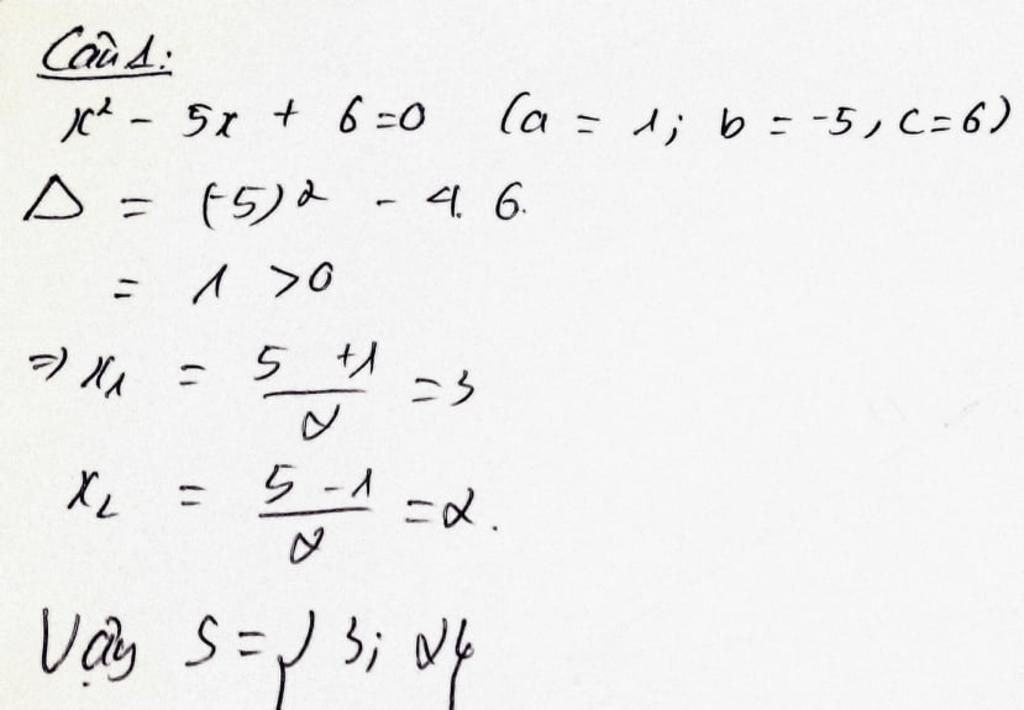 Câu 1:
x² - 5x + 6 = 0 (a = 1; b = -5, c = 6)
Δ = (-5)² - 4. 6.
= 1 > 0
⇒ x₁ = (5 + 1)/2 = 3
x₂ = (5 - 1)/2 = 2.
Vậy S = {3; 2}